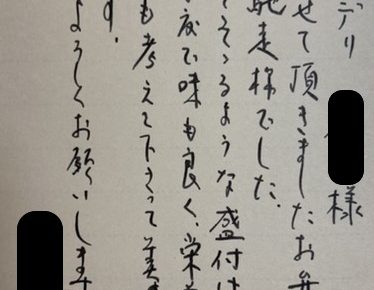 デリ
様
せて頂きましたお弁
馳走様でした。
そそるような盛付け
度で味も良く、栄
も考えて下さって美
す。
よろしくお願いします